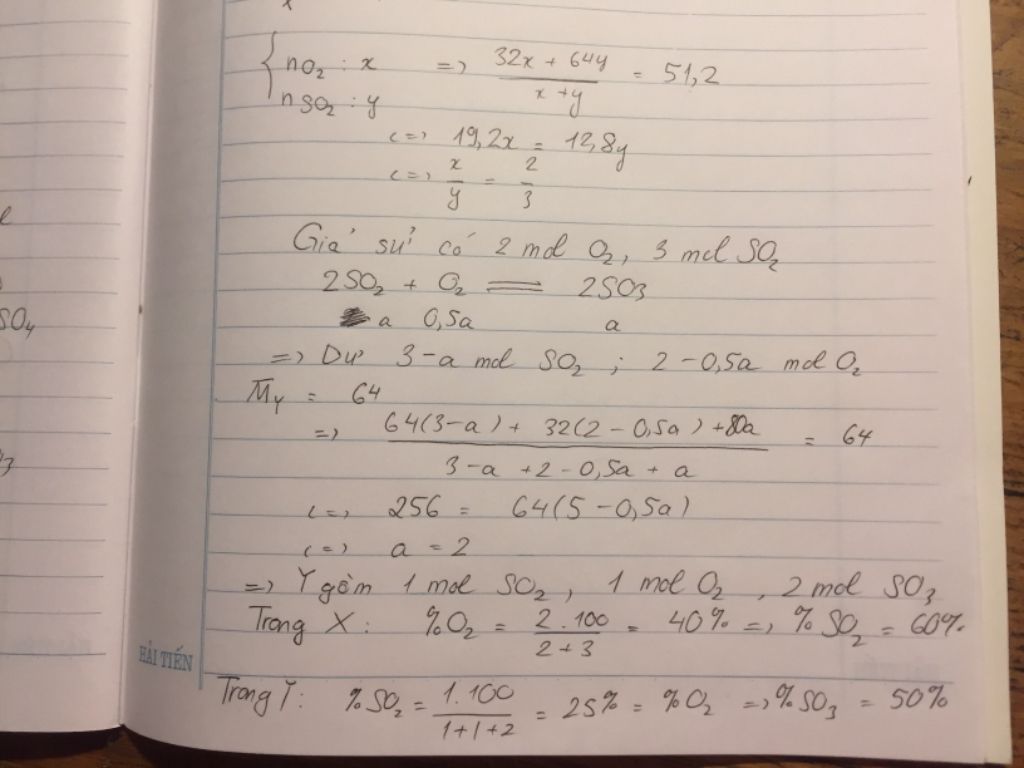 x
{ nO₂ : x => (32x + 64y)/(x + y) = 51,2
nSO₂ : y
<=> 19,2x = 12,8y
<=> x/y = 2/3
Giả sử có 2 mol O₂, 3 mol SO₂
2SO₂ + O₂ ⇌ 2SO₃
a 0,5a a
=> Dư 3-a mol SO₂ ; 2-0,5a mol O₂
M̅Y = 64
=> (64(3-a) + 32(2-0,5a) + 80a)/(3-a + 2-0,5a + a) = 64
<=> 256 = 64(5-0,5a)
<=> a = 2
=> Y gồm 1 mol SO₂, 1 mol O₂, 2 mol SO₃
Trong X: %O₂ = (2.100)/(2+3) = 40% => %SO₂ = 60%
Trong Y: %SO₂ = (1.100)/(1+1+2) = 25% = %O₂ => %SO₃ = 50%
HẢI TIẾN
SO₄